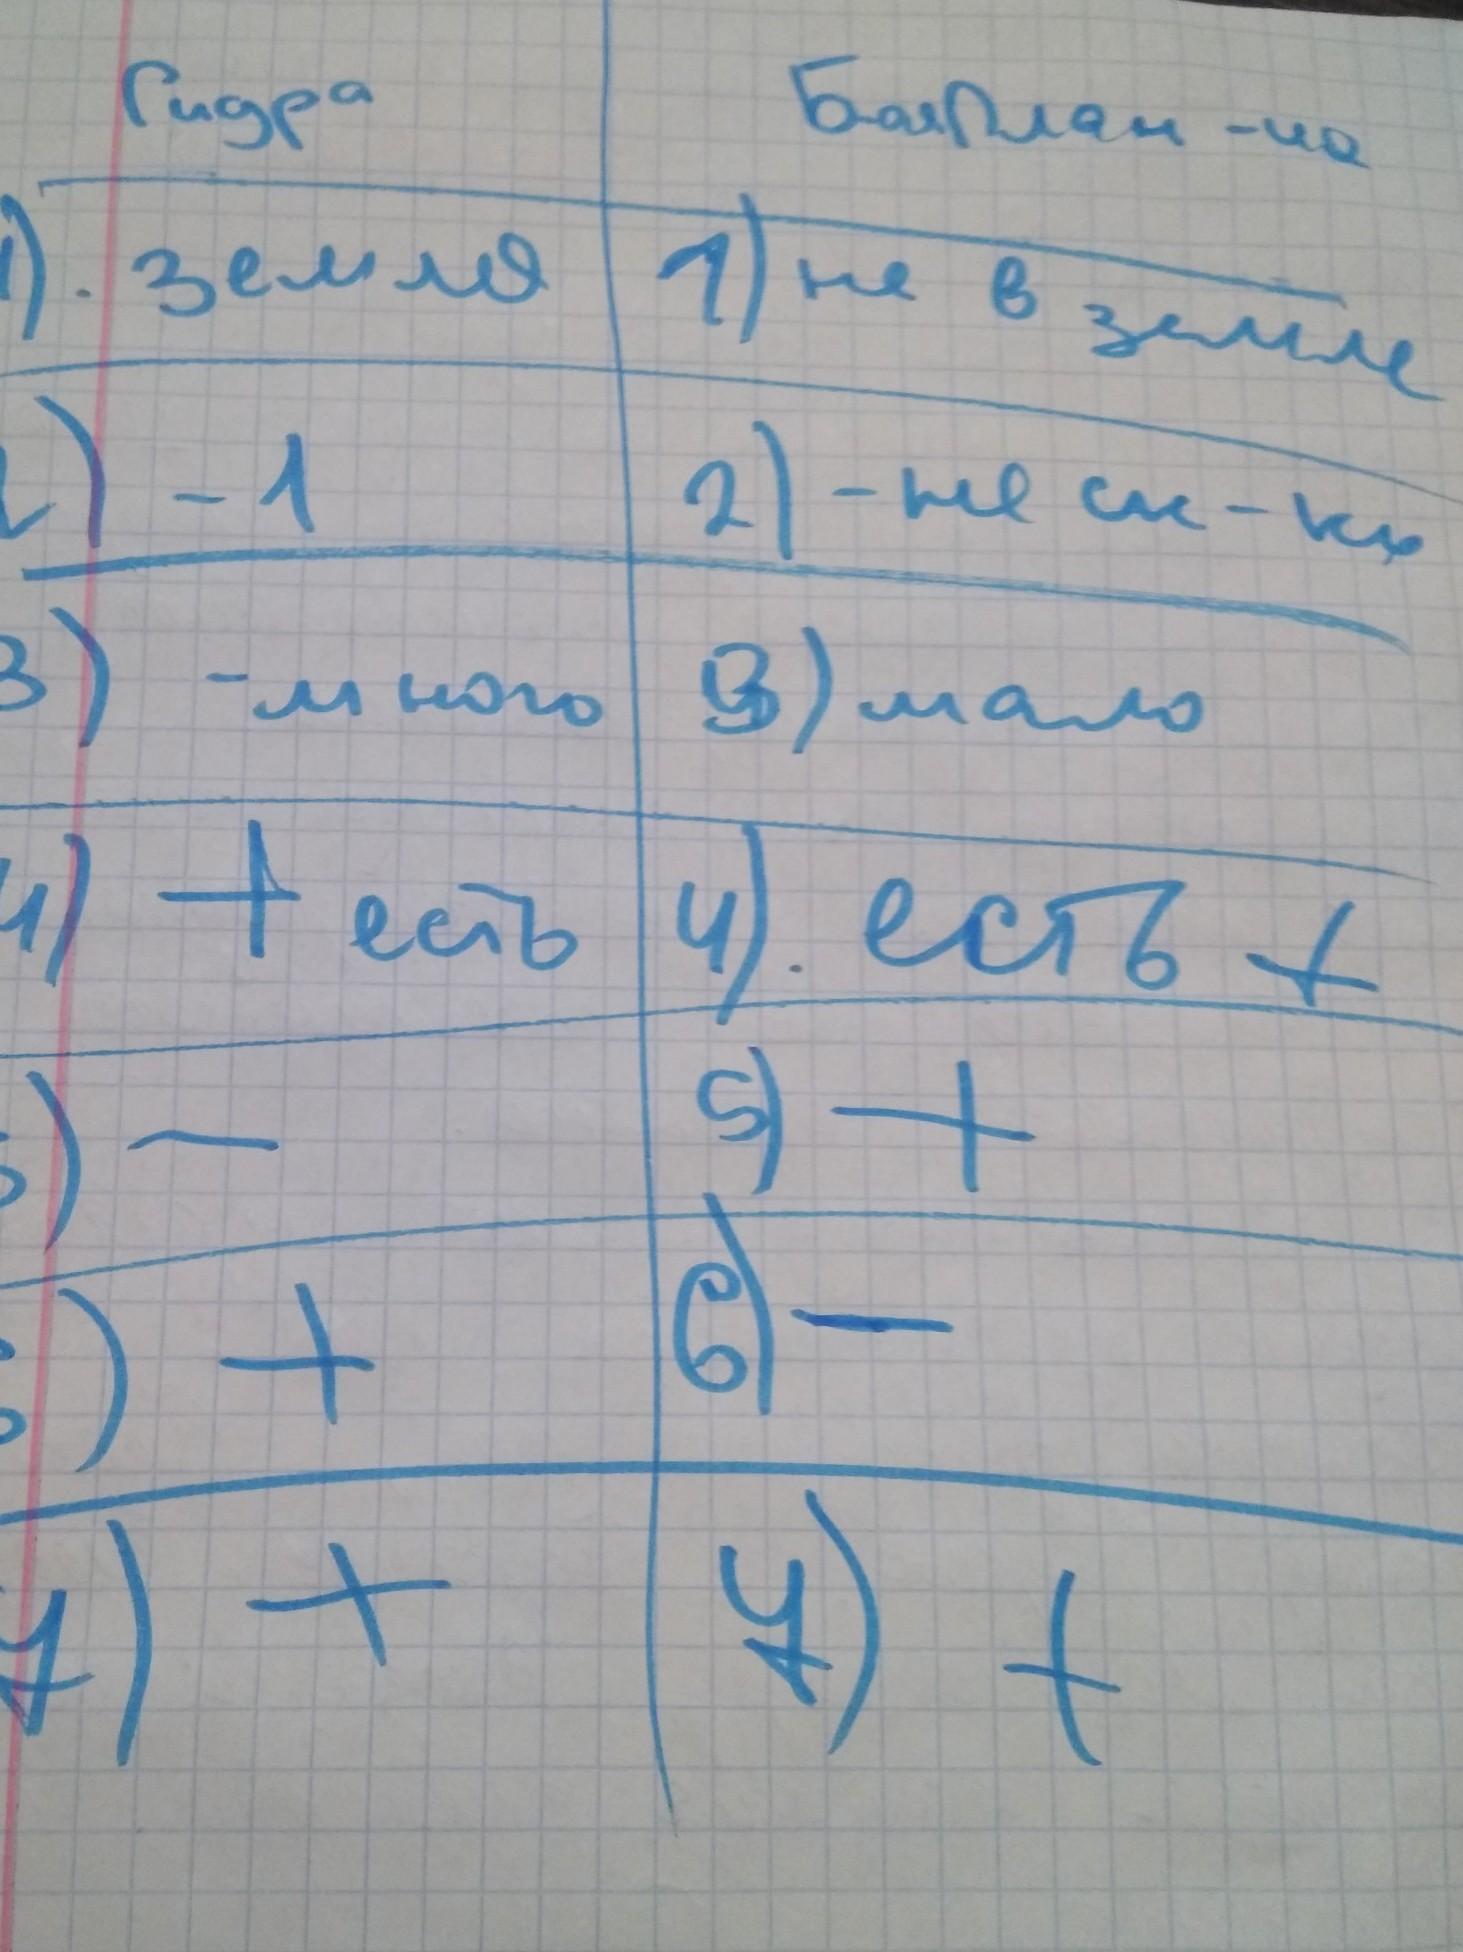 Гидра
1). земля 1) не в земле
2) - 1 2) - не ск - ко
3) - много 3) мало
4) + есть 4). есть +
5) — 5) +
6) + 6) —
7) + 7) +